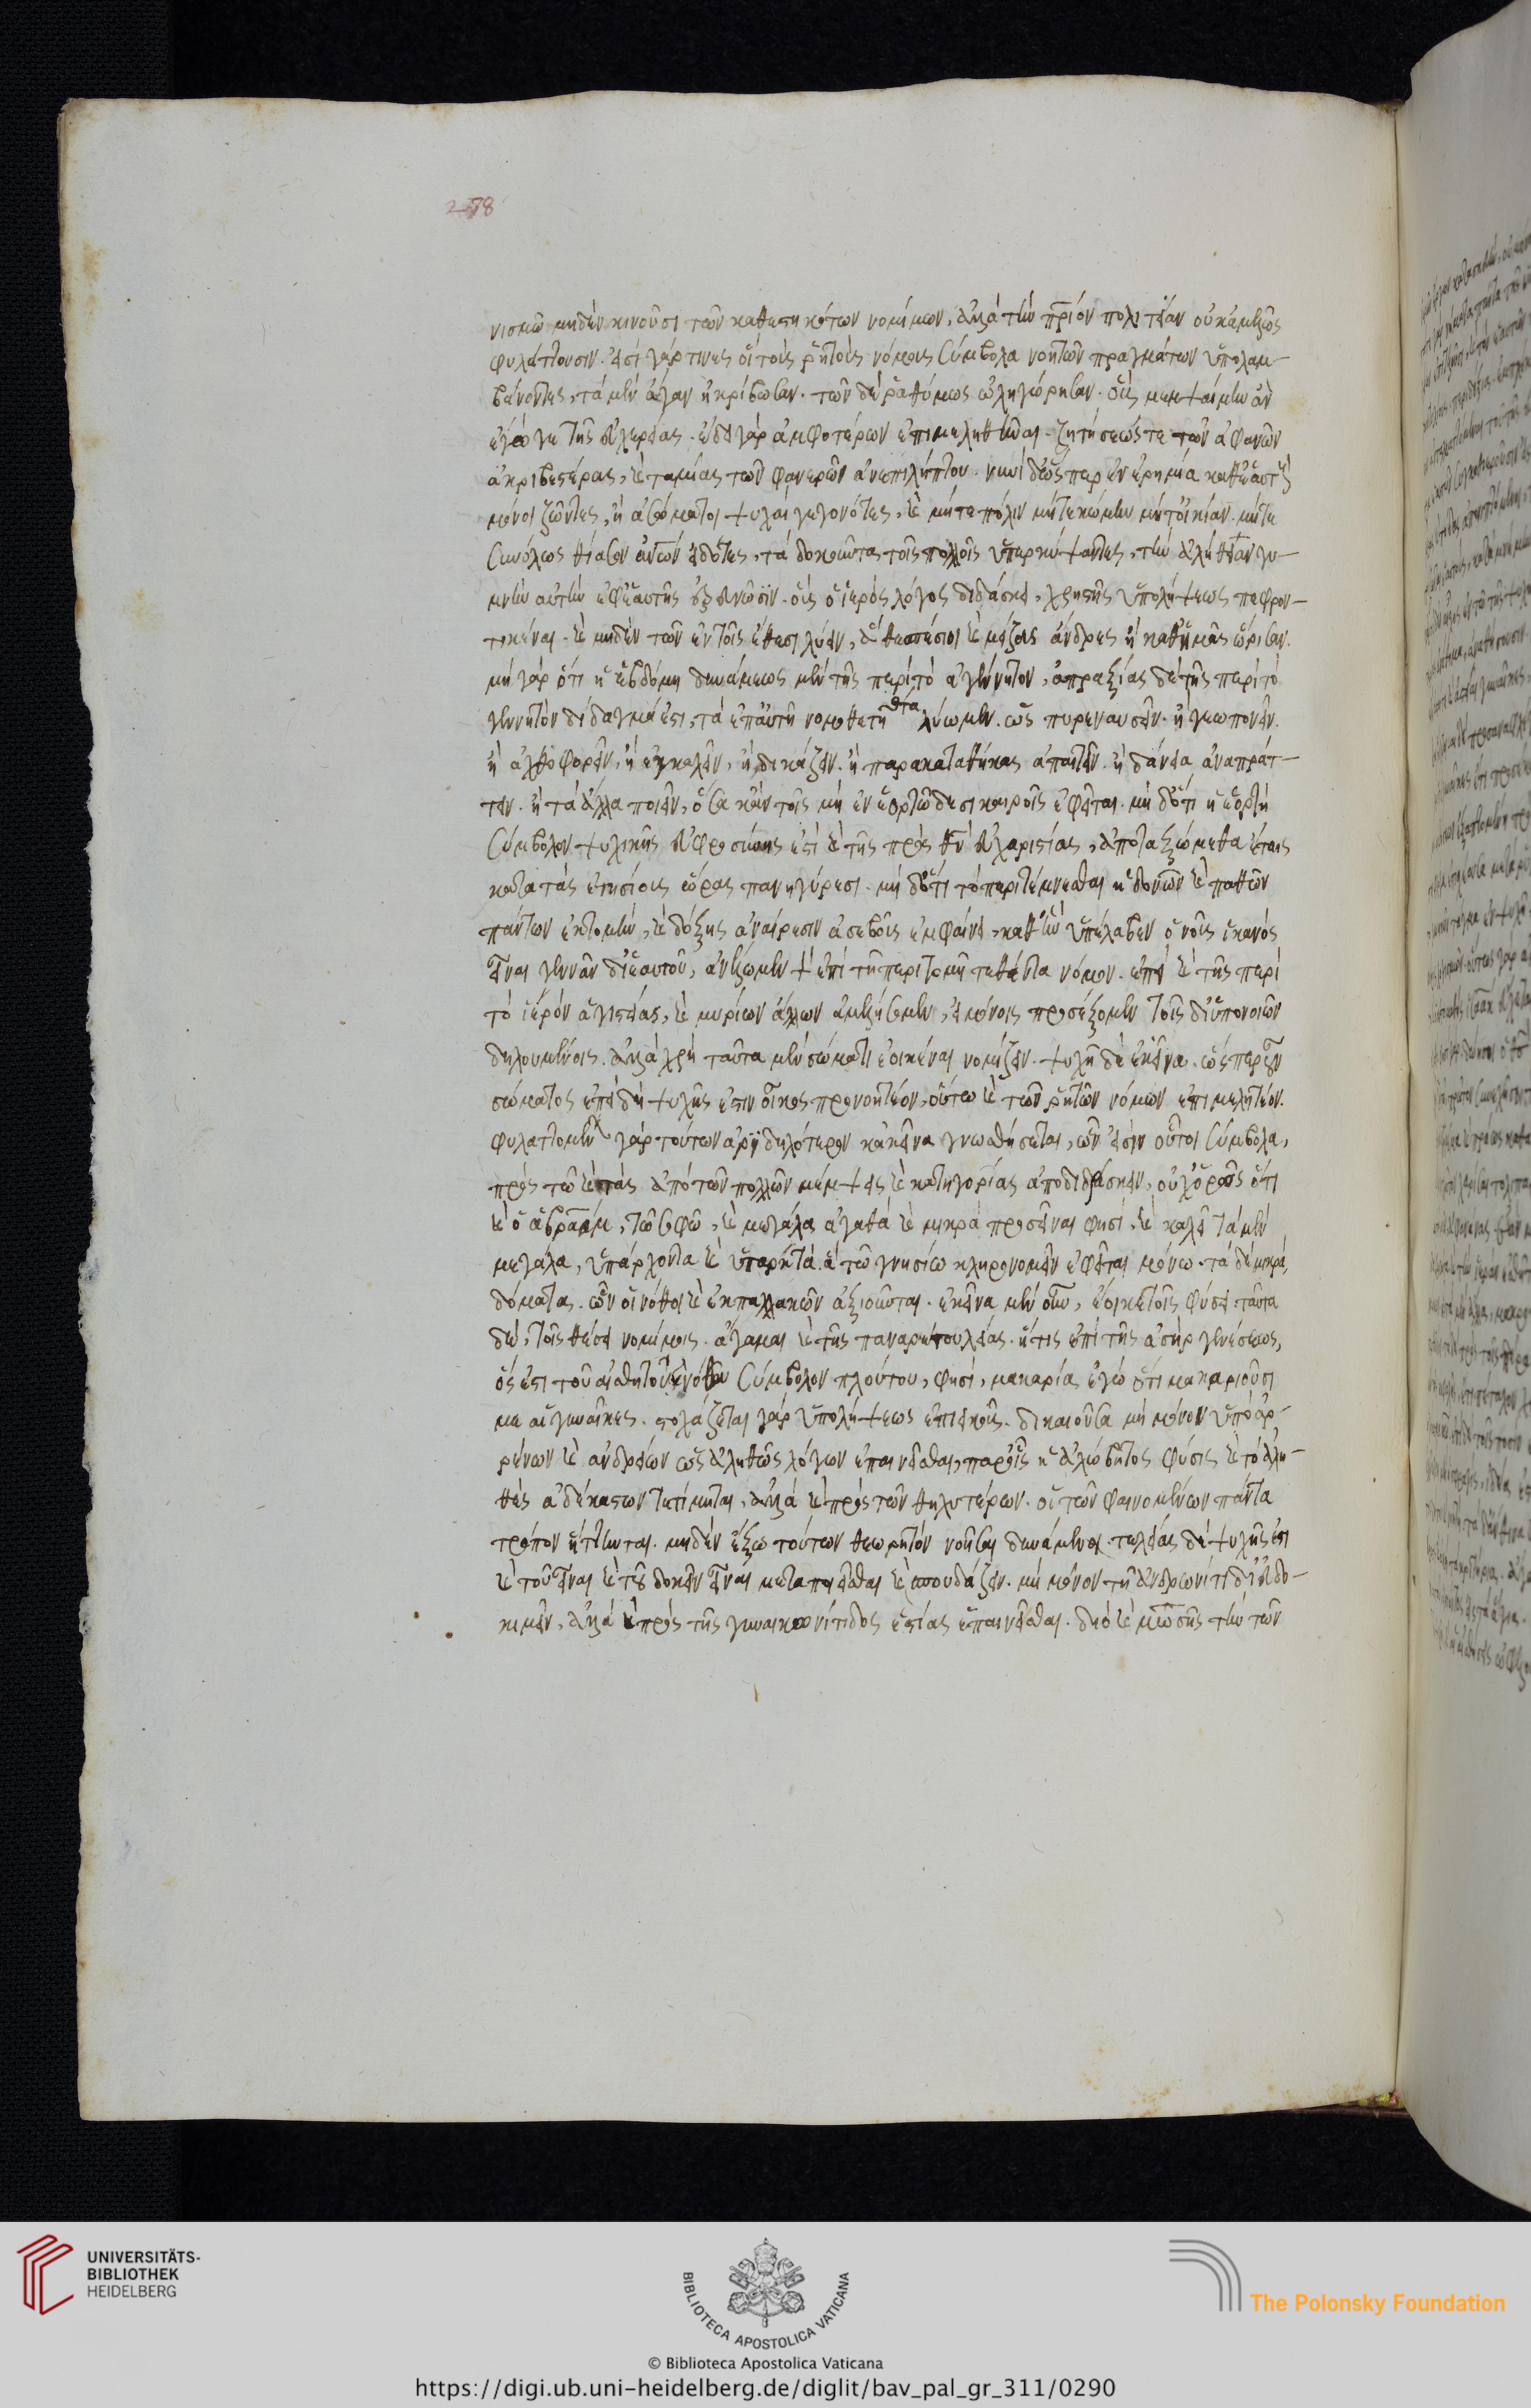 278
νισμῶ μηδὲν κινοῦσι τῶν καθεστηκότων νομίμων, ἀλλὰ τὴν πριὸν πολιτείαν οὐκ ἀμελῶς
φυλάττουσιν. εἰσὶ γάρ τινες οἳ τοὺς ῥητοὺς νόμους σύμβολα νοητῶν πραγμάτων ὑπολαμ-
βάνοντες, τὰ μὲν ἄγαν ἠκρίβωσαν. τῶν δὲ ῥαθύμως ὠλιγώρησαν. οὓς μεμψαίμην ἂν
ἔγωγε τῆς εὐχερείας. ἔδει γὰρ ἀμφοτέρων ἐπιμεληθῆναι. ζητήσεώς τε τῶν ἀφανῶν
ἀκριβεστέρας, καὶ ταμίας τῶν φανερῶν ἀνεπιλήπτου. νυνὶ δὲ ὥσπερ ἐν ἐρημία καθ' ἑαυτοὺς
μόνοι ζῶντες, ἢ ἀσώματοι ψυχαὶ γεγονότες, καὶ μήτε πόλιν μήτε κώμην μήτ' οἰκίαν. μήτε
συνόλως θίασον ἀνθρώπων εἰδότες, τὰ δοκοῦντα τοῖς πολλοῖς ὑπερκύψαντες, τὴν ἀλήθειαν γυ-
μνὴν αὐτὴν ἐφ' ἑαυτῆς ἐρευνῶσιν. οὓς ὁ ἱερὸς λόγος διδάσκει, χρηστῆς ὑπολήψεως πεφρον-
τικέναι. καὶ μηδὲν τῶν ἐν τοῖς ἔθεσι λύειν, ἃ θεσπέσιοι καὶ μείζους ἄνδρες ἢ καθ' ἡμᾶς ὥρισαν.
μὴ γὰρ ὅτι ἡ ἑβδόμη δυνάμεως μὲν τῆς περὶ τὸ ἀγένητον, ἀπραξίας δὲ τῆς περὶ τὸ
γεννητὸν δίδαγμά ἐστι, τὰ ἐπ' αὐτῆ νομοθετηθέντα λύωμεν. ὡς πυρεναύειν. ἢ γεωπονεῖν.
ἢ ἀχθοφορεῖν, ἢ ἐγκαλεῖν, ἢ δικάζειν. ἢ παρακαταθήκας ἀπαιτεῖν. ἢ δάνεια ἀναπράτ-
τειν. ἢ τὰ ἄλλα ποιεῖν, ὅσα κἀν τοῖς μὴ ἐν ἑορτώδεσι καιροῖς ἐφεῖται. μὴ δ' ὅτι ἡ ἑορτὴ
σύμβολον ψυχικῆς εὐφροσύνης ἐστὶ καὶ τῆς πρὸς θν εὐχαριστίας, ἀποταξώμεθα ταῖς
κατὰ τὰς ἐτησίοις ὥρας πανηγύρεσι. μὴ δ' ὅτι τὸ περιτέμνεσθαι ἡδονῶν καὶ παθῶν
πάντων ἐκτομὴν, καὶ δόξης ἀναίρεσιν ἀσεβοῦς ἐμφαίνει, καθ' ἣν ὑπέλαβεν ὁ νοῦς ἱκανὸς
εἶναι γεννᾶν δι' ἑαυτοῦ, ἀνέλωμεν τὸν ἐπὶ τῆ περιτομῆ τεθέντα νόμον. ἐπεὶ καὶ τῆς περὶ
τὸ ἱερὸν ἁγιστείας, καὶ μυρίων ἄλλων ἀμελήσομεν, εἰ μόνοις προσέξομεν τοῖς δι' ὑπονοιῶν
δηλουμένοις. ἀλλὰ χρὴ ταῦτα μὲν σώματι ἐοικέναι νομίζειν. ψυχῆ δὲ ἐκεῖνα. ὥσπερ οὖν
σώματος ἐπειδὴ ψυχῆς ἐστιν οἶκος προνοητέον, οὕτω καὶ τῶν ῥητῶν νόμων ἐπιμελητέον.
φυλαττομένων γὰρ τούτων ἀριδηλότερον κἀκεῖνα γνωσθήσεται, ὧν εἰσὶν οὗτοι σύμβολα,
πρὸς τῶ καὶ τὰς ἀπὸ τῶν πολλῶν μέμψεις καὶ κατηγορίας ἀποδιδράσκειν, οὐχ ὁρᾶς ὅτι
καὶ ὁ ἀβραὰμ, τῶ σοφῶ, καὶ μεγάλα ἀγαθὰ καὶ μικρὰ προσεῖναι φησὶ, καὶ καλεῖ τὰ μὲν
μεγάλα, ὑπάρχοντα καὶ ὑπαρκτὰ. ἃ τῶ γνησίω κληρονομεῖν ἐφεῖται μόνω. τὰ δὲ μικρὰ,
δόματα. ὧν οἱ νόθοι καὶ ἐκ παλλακῶν ἀξιοῦνται. ἐκεῖνα μὲν οὖν, ἔοικε τοῖς φύσει ταῦτα
δὲ, τοῖς θέσει νομίμοις. ἄγαμαι καὶ τῆς παναρέτου λείας. ἥτις ἐπὶ τῆς ἀσὴρ γενέσεως,
ὅς ἐστι τοῦ αἰσθητοῦ καὶ νόθου σύμβολον πλούτου, φησὶ, μακαρία ἐγὼ ὅτι μακαριοῦσι
με αἱ γυναῖκες. στοχάζεται γὰρ ὑπολήψεως ἐπιεικοῦς. δικαιοῦσα μὴ μόνον ὑπὸ ἀρ-
ρένων καὶ ἀνδρείων ὡς ἀληθῶς λόγων ἐπαινεῖσθαι, παρ' οἷς ἡ ἀλώβητος φύσις καὶ τὸ ἀλη-
θὲς ἀδέκαστον τετίμηται, ἀλλὰ καὶ πρὸς τῶν θηλυτέρων. οἳ τῶν φαινομένων πάντα
τρόπον ἥττηνται. μηδὲν ἔξω τούτων θεωρητὸν νοῆσαι δυνάμενοι. τελείας δὲ ψυχῆς ἐστι
καὶ τοῦ εἶναι καὶ τοῦ δοκεῖν εἶναι μεταποιεῖσθαι καὶ σπουδάζειν. μὴ μόνον τῆ ἀνδρωνίτιδι εὐδο-
κιμεῖν, ἀλλὰ καὶ πρὸς τῆς γυναικωνίτιδος ἑστίας ἐπαινεῖσθαι. διὸ καὶ μωσῆς τὴν τῶν
UNIVERSITÄTS-
BIBLIOTHEK
HEIDELBERG
BIBLIOTECA APOSTOLICA VATICANA
The Polonsky Foundation
© Biblioteca Apostolica Vaticana
https://digi.ub.uni-heidelberg.de/diglit/bav_pal_gr_311/0290